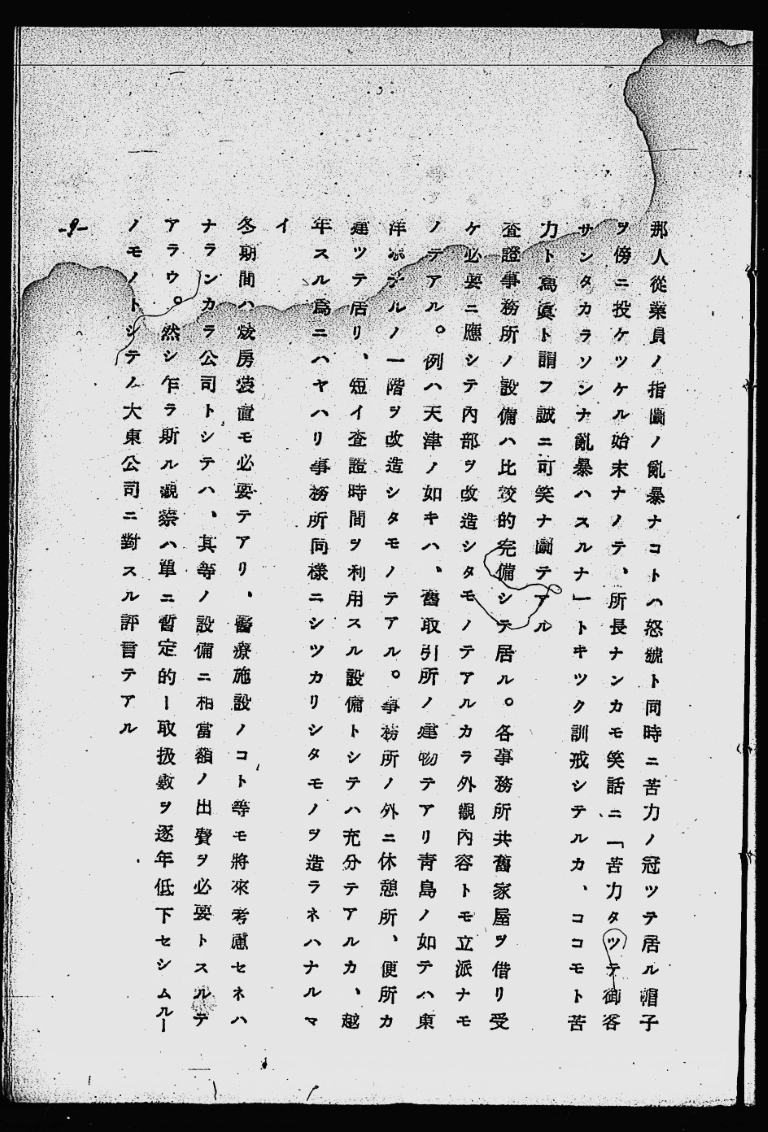 那人從業員ノ指圖ノ亂暴ナコトハ怒號ト同時ニ苦力ノ冠ツテ居ル帽子
ヲ傍ニ投ケツケル始末ナノテ、所長ナンカモ笑話ニ「苦力タツテ御客
サンタカラソンナ亂暴ハスルナ」トキツク訓戒シテルカ、ココモト苦
力ト爲眞ト謂フ誠ニ可笑ナ圖テアル
査證事務所ノ設備ハ比較的完備シテ居ル。各事務所共舊家屋ヲ借リ受
ケ必要ニ應シテ內部ヲ改造シタモノテアルカラ外觀內容トモ立派ナモ
ノテアル。例ハ天津ノ如キハ、舊取引所ノ建物テアリ靑島ノ如テハ東
洋ホテルノ一階ヲ改造シタモノテアル。事務所ノ外ニ休憩所、便所カ
建ツテ居リ、短イ査證時間ヲ利用スル設備トシテハ充分テアルカ、越
年スル爲ニハヤハリ事務所同樣ニシツカリシタモノヲ造ラネハナルマ
イ
冬期間ハ煖房裝置モ必要テアリ、醫療施設ノコト等モ將來考慮セネハ
ナランカラ公司トシテハ、其等ノ設備ニ相當額ノ出費ヲ必要トスルテ
アラウ。然シ乍ラ斯ル觀察ハ單ニ暫定的ー取扱數ヲ逐年低下セシムルー
ノモノトシテノ大東公司ニ對スル評言テアル
-9-